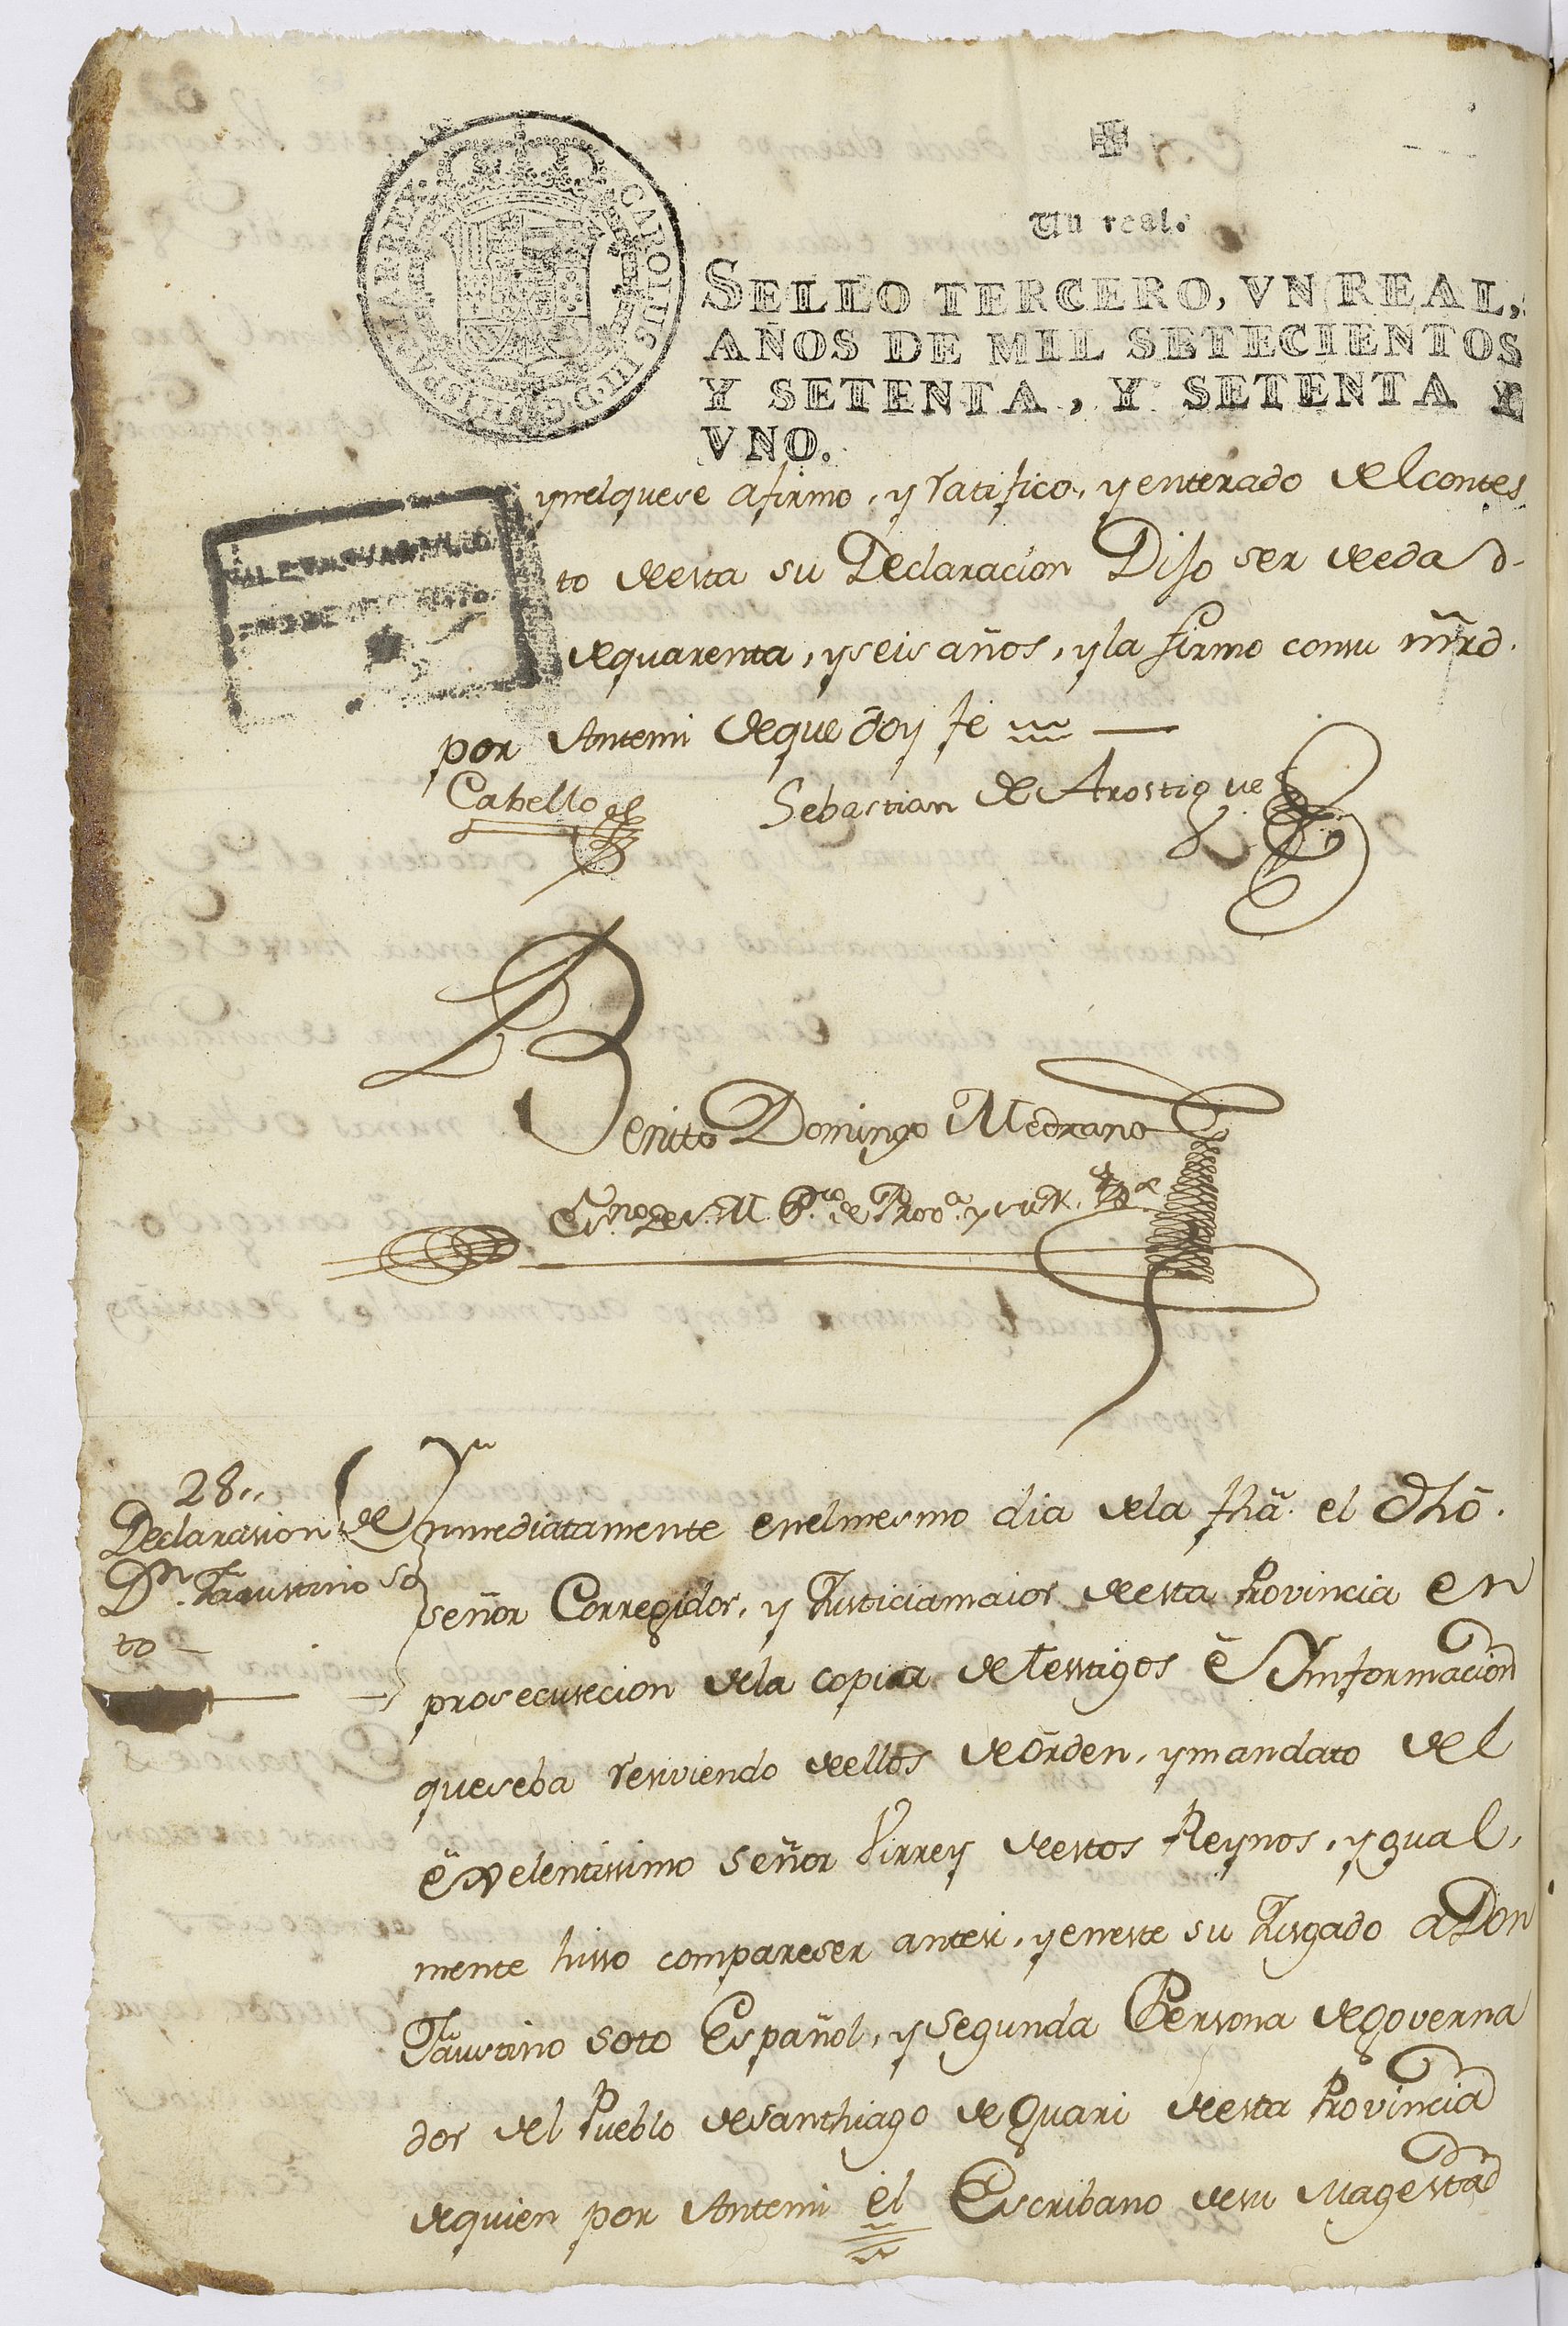 Un real.
SELLO TERCERO, VN REAL,
AÑOS DE MIL SETECIENTOS
Y SETENTA, Y SETENTA Y
VNO.
CAROLUS III D G HISPANIAR REX
ynelquese afirmo, y ratifico, y enterado delcontes
to deesta su Declaracion Dijo ser deedad
dequarenta, yseis años, yla firmo consu mrd.
por Antemi dequedoy fe
Cabello
Sebastian de Arostigue
Benito Domingo Medrano
Esno. de S. M. Pco. de Prova. y su R. Hda
28,,
Declarasion de
Dn. Faustino So
to
Ynmediatamente enelmesmo dia dela fha. el dho.
señor Corregidor, y Justiciamaior deesta Provincia en
prosecusecion dela copia de testigos è Ynformacion
queseba resiviendo deellos de orden, ymandato del
exelentissimo señor Virrey deestos Reynos, ygual,
mente hisso compareser antesi, yeneste su Jusgado aDon
Faustino soto Español, y segunda Persona deGoverna
dor del Pueblo deSanthiago deGuari deesta Provincia
dequien por Antemi el Escribano desu Magestad